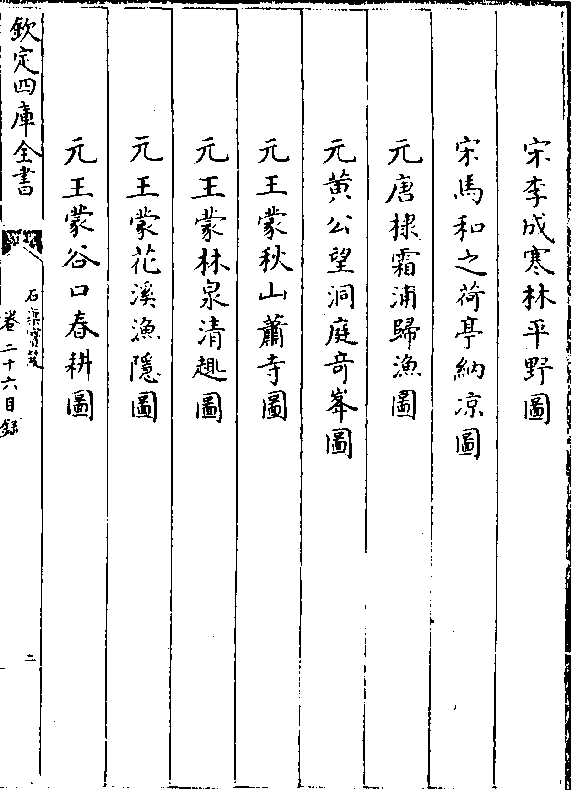 宋李成寒林平野圖
宋馬和之荷亭納凉圖
元唐棣霜浦歸漁圖
元黄公望洞庭竒峯圖
元王蒙秋山蕭寺圖
元王蒙林泉清趣圖
元王蒙花溪漁隱圖
元王蒙谷口春耕圖
欽定四庫全書
石渠寳笈
卷二十六目録
二